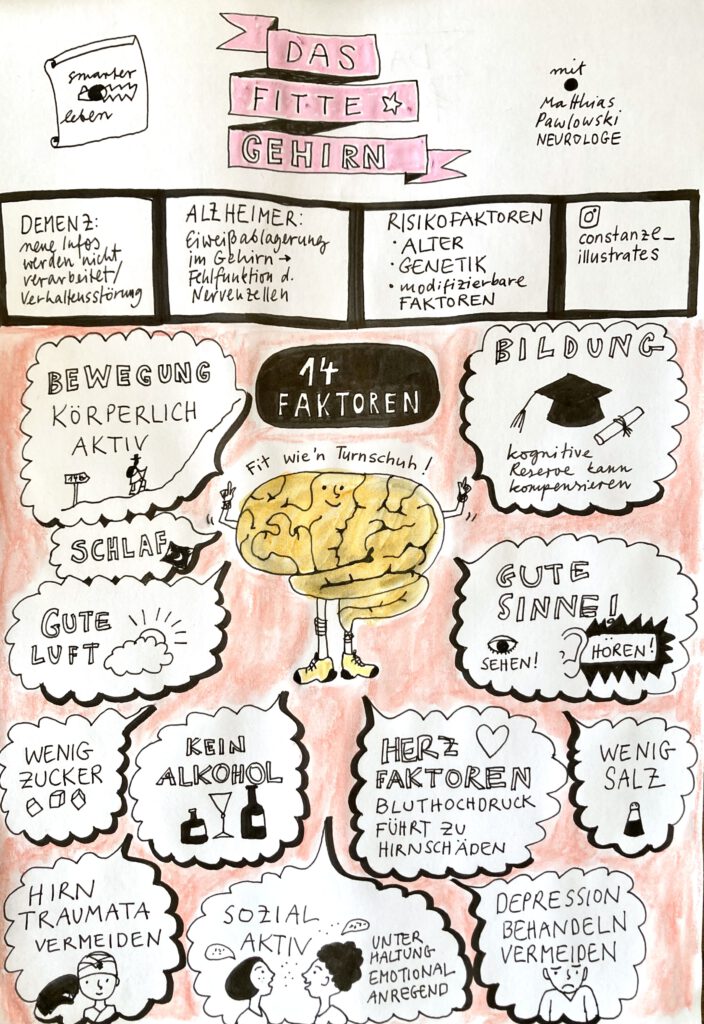 smarter
leben
DAS
FITTE
GEHIRN
mit
Matthias
Pawlowski
NEUROLOGE
DEMENZ:
neue Infos
werden nicht
verarbeitet/
Verhaltensstörung
ALZHEIMER:
Eiweißablagerung
im Gehirn →
Fehlfunktion d.
Nervenzellen
RISIKOFAKTOREN
• ALTER
• GENETIK
• modifizierbare
FAKTOREN
constanze_
illustrates
14
FAKTOREN
BEWEGUNG
KÖRPERLICH
AKTIV
BILDUNG
kognitive
Reserve kann
kompensieren
Fit wie'n Turnschuh!
SCHLAF
GUTE
LUFT
GUTE
SINNE!
SEHEN!
HÖREN!
WENIG
ZUCKER
KEIN
ALKOHOL
HERZ
FAKTOREN
BLUTHOCHDRUCK
FÜHRT ZU
HIRNSCHÄDEN
WENIG
SALZ
HIRN
TRAUMATA
VERMEIDEN
SOZIAL
AKTIV
UNTER
HALTUNG
EMOTIONAL
ANREGEND
DEPRESSION
BEHANDELN
VERMEIDEN